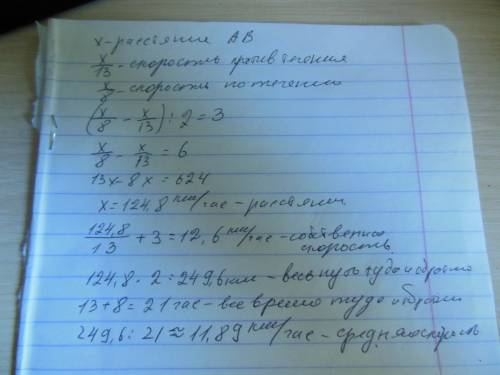 х-расстояние АВ
х/13 - скорость против течения
х/8 - скорость по течению
(х/8 - х/13) : 2 = 3
х/8 - х/13 = 6
13х-8х = 624
х=124,8 км/час - расстояни
124,8/13 + 3 = 12,6 км/час - собственная скорость
124,8 · 2 = 249,6 км - весь путь туда и обратно
13+8 = 21 час - все время туда и обратно
249,6 : 21 ≈ 11,89 км/час - средняя скорость